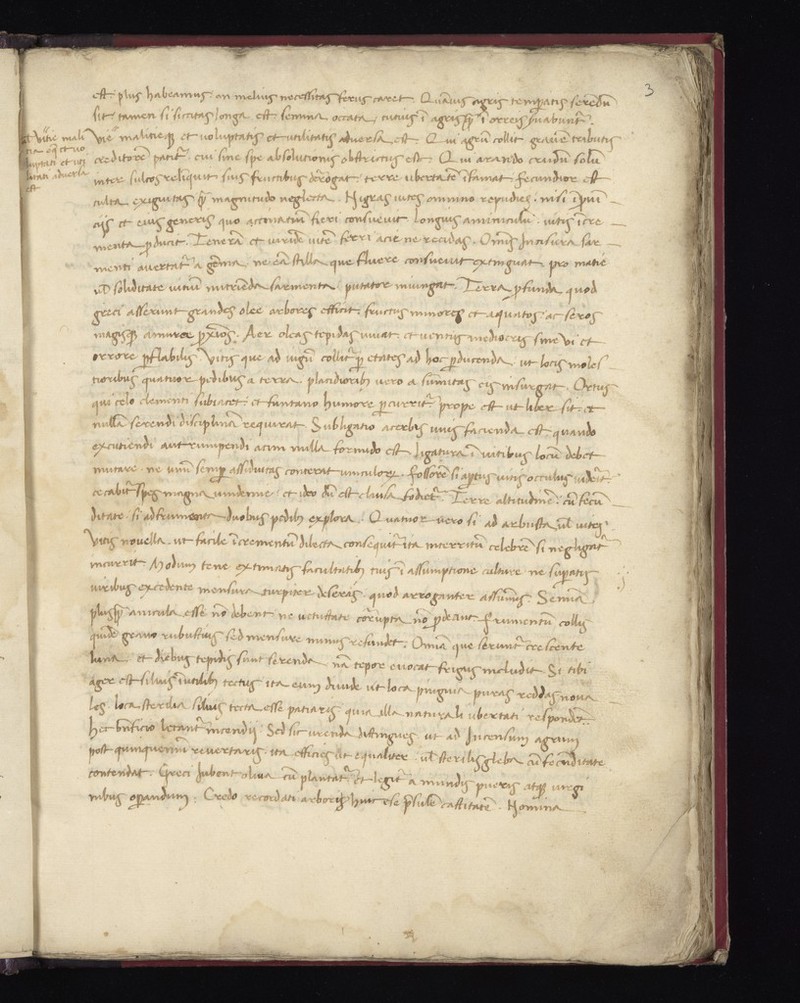 3
est plus habeamus an melius necessitas ferus caret. Quāuis agris temperatis serēdū
sit tamen si siccitas longa est semina occata tutius ī agris qͣ ī orreis ẜuabuntᷣ.
Vie malitieqꝫ et voluptatis et utilitatis aduersa est. Qui agrū collit grauē tributis
creditorē patitᷣ. cui sine spe absolutionis obstrictus est. Qui arando crudū solū
inter sulcos reliquit suis fructibus derogat. terre ubertatē īfamat. fecundior est
culta exiguitas qͣ magnitudo neglecta. Nigras uites omnino repudies. nisi ī ꝓuī
ciis et eius generis quo acinatiū fieri consueuit. Longius aminiculū uitis īcre
menta ꝓducit. Tenerā et uiridē uitē ferri acie ne recidas. Omīs Incisura sar
menti auertatᷣ a gēma ne eā stilla que fluere consueuit extinguat. pro matie
ul soliditate uitiū nutriēda sarmenta putator iniungat. Terra ꝓfunda quod
greci asserunt grandes olee arbores efficit. fructus minores et aquatos ac seros
magisqꝫ amurce ꝓxios. Aer oleas tepidus iuuat et uentus mediocris sine ui et
orrore ꝑflabilis. Vitis que ad iugū collitᷣ ꝑ etates ad hoc ꝓducenda ut locis moles
tioribus quatuor pedibus a terra placidiorib᷒ uero a sūmitas eis insurgat. Ortus
qui celo clementi subiacet et fontano humore ꝑcurritᷣ prope est ut liber sit et
nullā serendi disciplinā requirat. Subligatio acerbis uuis facienda est quando
excutiendi aut rumpendi acini nulla formido est. ligatura ī uitibus locū debet
mutare ne unū semꝑ assiduitas conterat uinculoꝝ. fossorē si aꝑtus uitis occulus uiderit.
cecabitᷣ spes magna uindemie. et ideo dū est clausa fodietᷣ. Terre altitudinē cū fecū
ditate si ad frumenta duobus pedib᷒ explora. Quatuor uero si ad arbusta ul uites.
Vitis nouella ut facile īcrementū dilecta consequitᷣ ita interritū celebrē si negligatᷣ
incurrit. Modum tene extimatis facultatib᷒ tuis ī assumptione culture ne suꝑatis
uiribus excedente mensura turpiter deseras quod arroganter assumis. Semīa
plusqͣ anicula esse nō debent ne uetustate corrupta nō ꝓdeant. Frumentū collis
quidē grano rubustius sed mensure minus refundet. Omīa que seruntᷣ crescente
luna et diebus tepidis sunt serenda nā tepor euocat frigus includit. Si tibi
ager est siluis inutilib᷒ tectus ita eum diuide ut loca pinguia puras reddas noua
les. loca sterilia siluis tecta esse patiaris quia illa naturali ubertati respondēt.
hec bn̄ficio letantᷣ incendii. Sed sic urenda distingues ut ad Incensum agrum
post quinquenniū reuertaris. ita efficies ut equaliter ul sterilis gleba cū fecūditate
contendat. Greci Jubent oliua cū plantatᷣ et legitᷣ a mundis pueris atqꝫ uirgi
nibus oꝑandum. Credo recordati arboris huic esse p̄sulē castitatē. Nomina